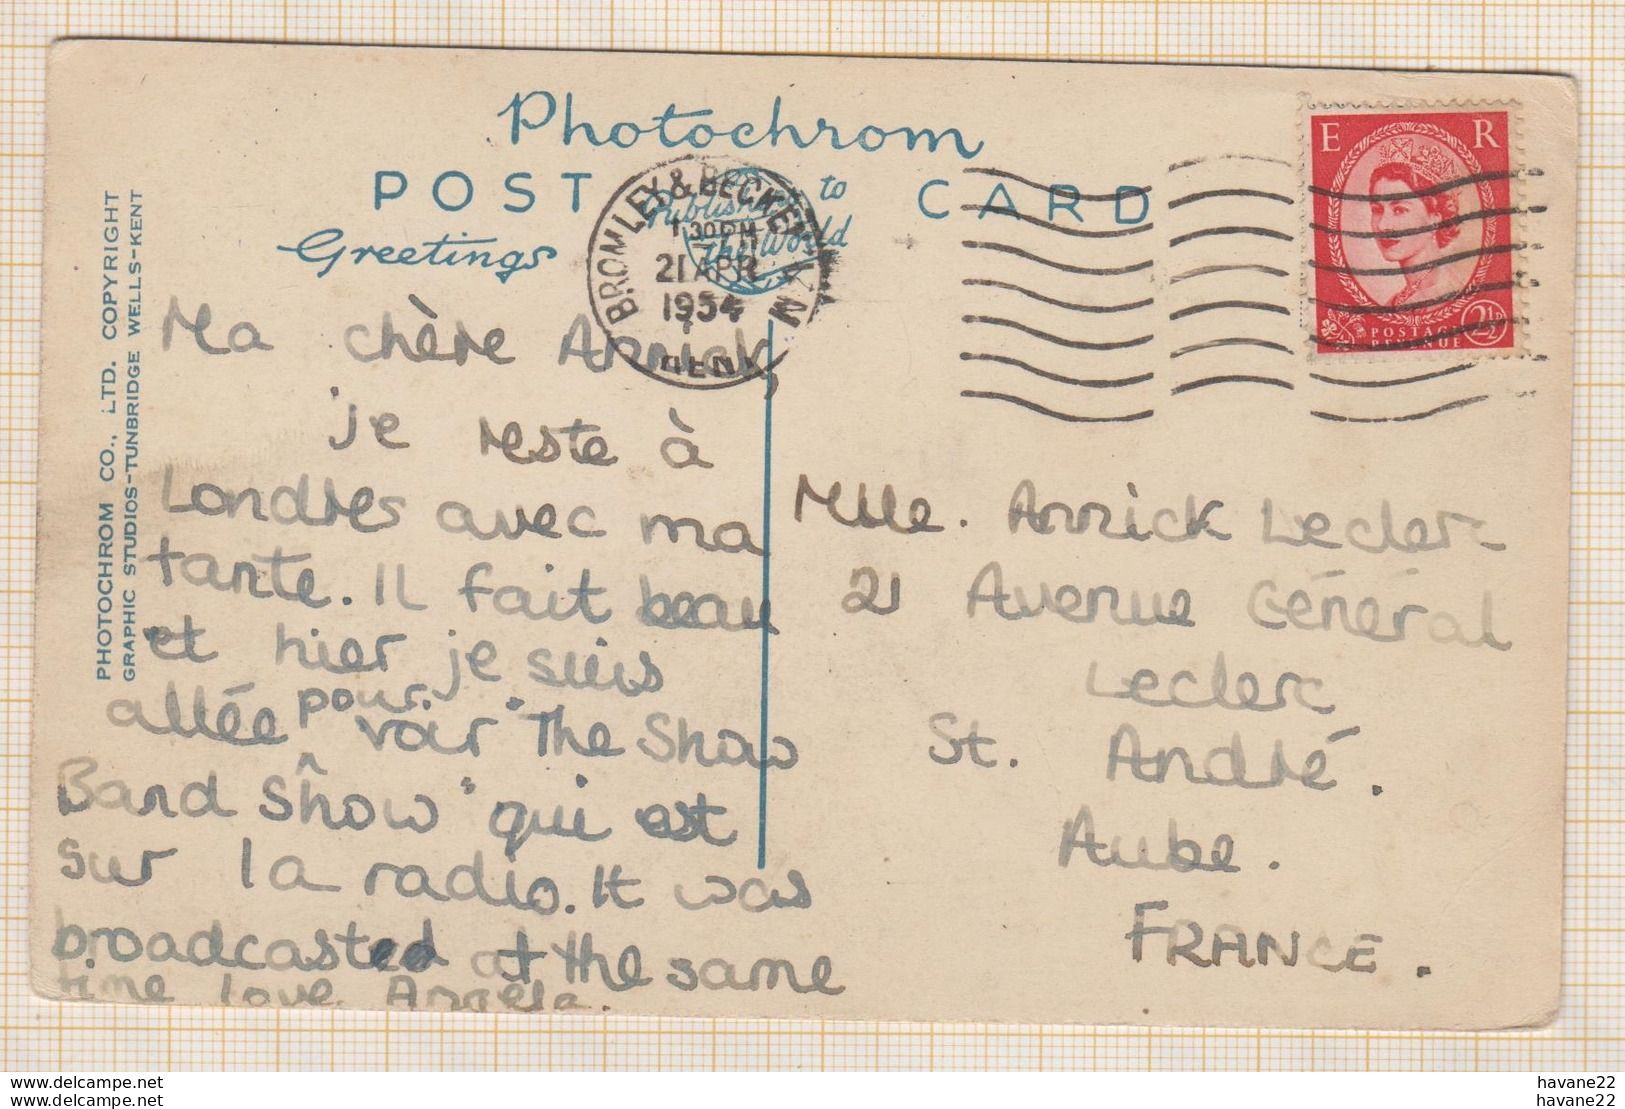 Photochrom
POST CARD
Greetings
Published to
the World
BROMLEY & BECKENHAM
1 30 PM
21 APR
1954
KENT
E R
POSTAGE
REVENUE
2½D
PHOTOCHROM CO., LTD. COPYRIGHT
GRAPHIC STUDIOS-TUNBRIDGE WELLS-KENT
Ma chère Annick,
je reste à
Londres avec ma
tante. Il fait beau
et hier je suis
allée pour voir "The Show
Band Show" qui est
sur la radio. It was
broadcasted at the same
time love Angela.
Mlle. Annick Leclerc
21 Avenue Général
Leclerc
St. André.
Aube.
FRANCE.
www.delcampe.net
www.delcampe.net
havane22
havane22